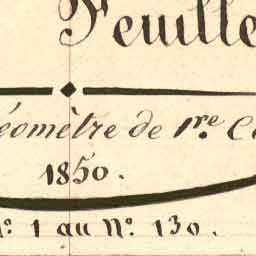 Feuille
éomètre de 1re. C
1850.
N: 1 au No. 130.